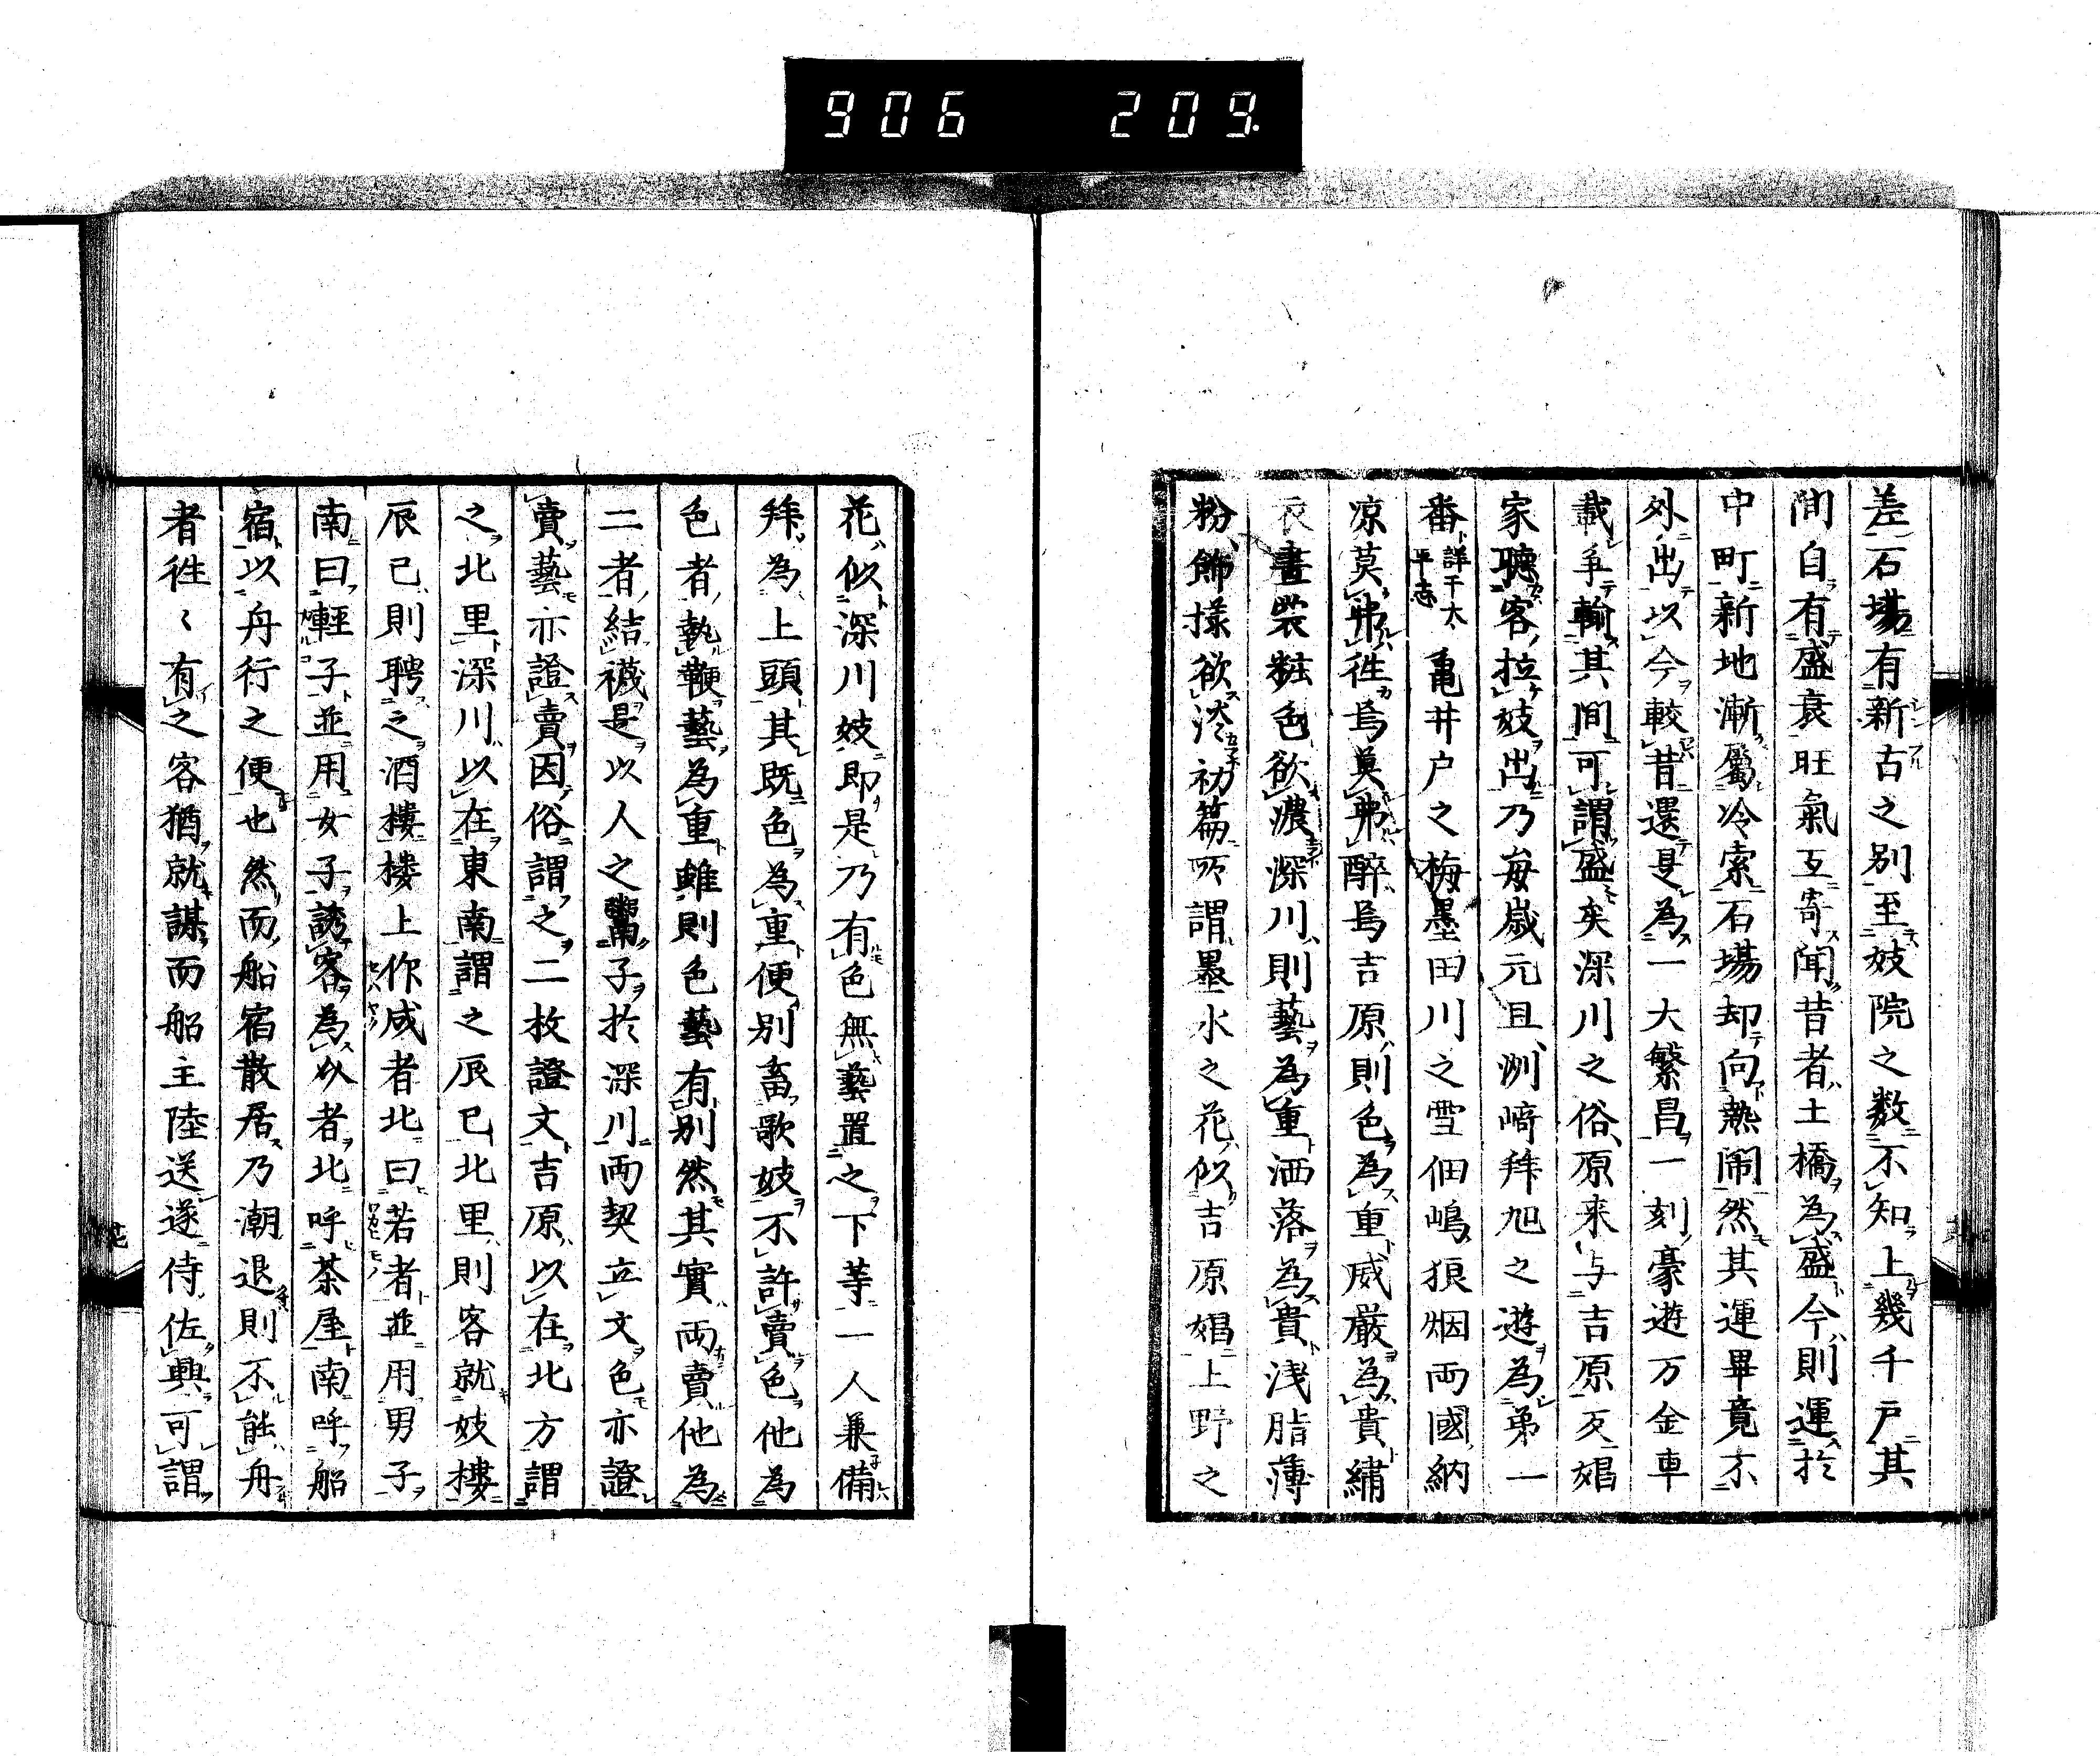 906 209.
差石場有新古之別至妓院之数不知上幾千戸其
間自有盛衰旺氣互寄聞昔者土橋為盛今則運於
中町新地漸屬冷索石場却向熱閙然其運畢竟不
外出以今較昔還是為一大繁昌一刻豪遊万金車
載爭輸其間可謂盛矣深川之俗原来与吉原反娼
家聴客拉妓出乃毎歳元旦洲﨑拜旭之遊為第一
番詳干太平志亀井戸之梅墨田川之雪佃嶋狼烟両國納
凉莫弗徃焉莫弗醉焉吉原則色為重威嚴為貴繡
衣畫裳粧色欲濃深川則藝為重洒落為貴浅脂薄
粉飾様欲淡初篇所謂墨水之花似吉原娼上野之
花似深川妓即是乃有色無藝置之下等一人兼備
拜為上頭其既色為重便別畜歌妓不許賣色他為
色者執鞭藝為重雖則色藝有別然其實両賣他為
二者結襪是以人之鬻子於深川両契立文色亦證
賣藝亦證賣因俗謂之二枚證文吉原以在北方謂
之北里深川以在東南謂之辰巳北里則客就妓樓
辰已則聘之酒樓楼上作咸者北曰若者並用男子
南曰輕子並用女子誘客為以者北呼茶屋南呼船
宿以舟行之便也然而船宿散居乃潮退則不能舟
者徃〻有之客猶就謀而船主陸送遂侍佐興可謂
花